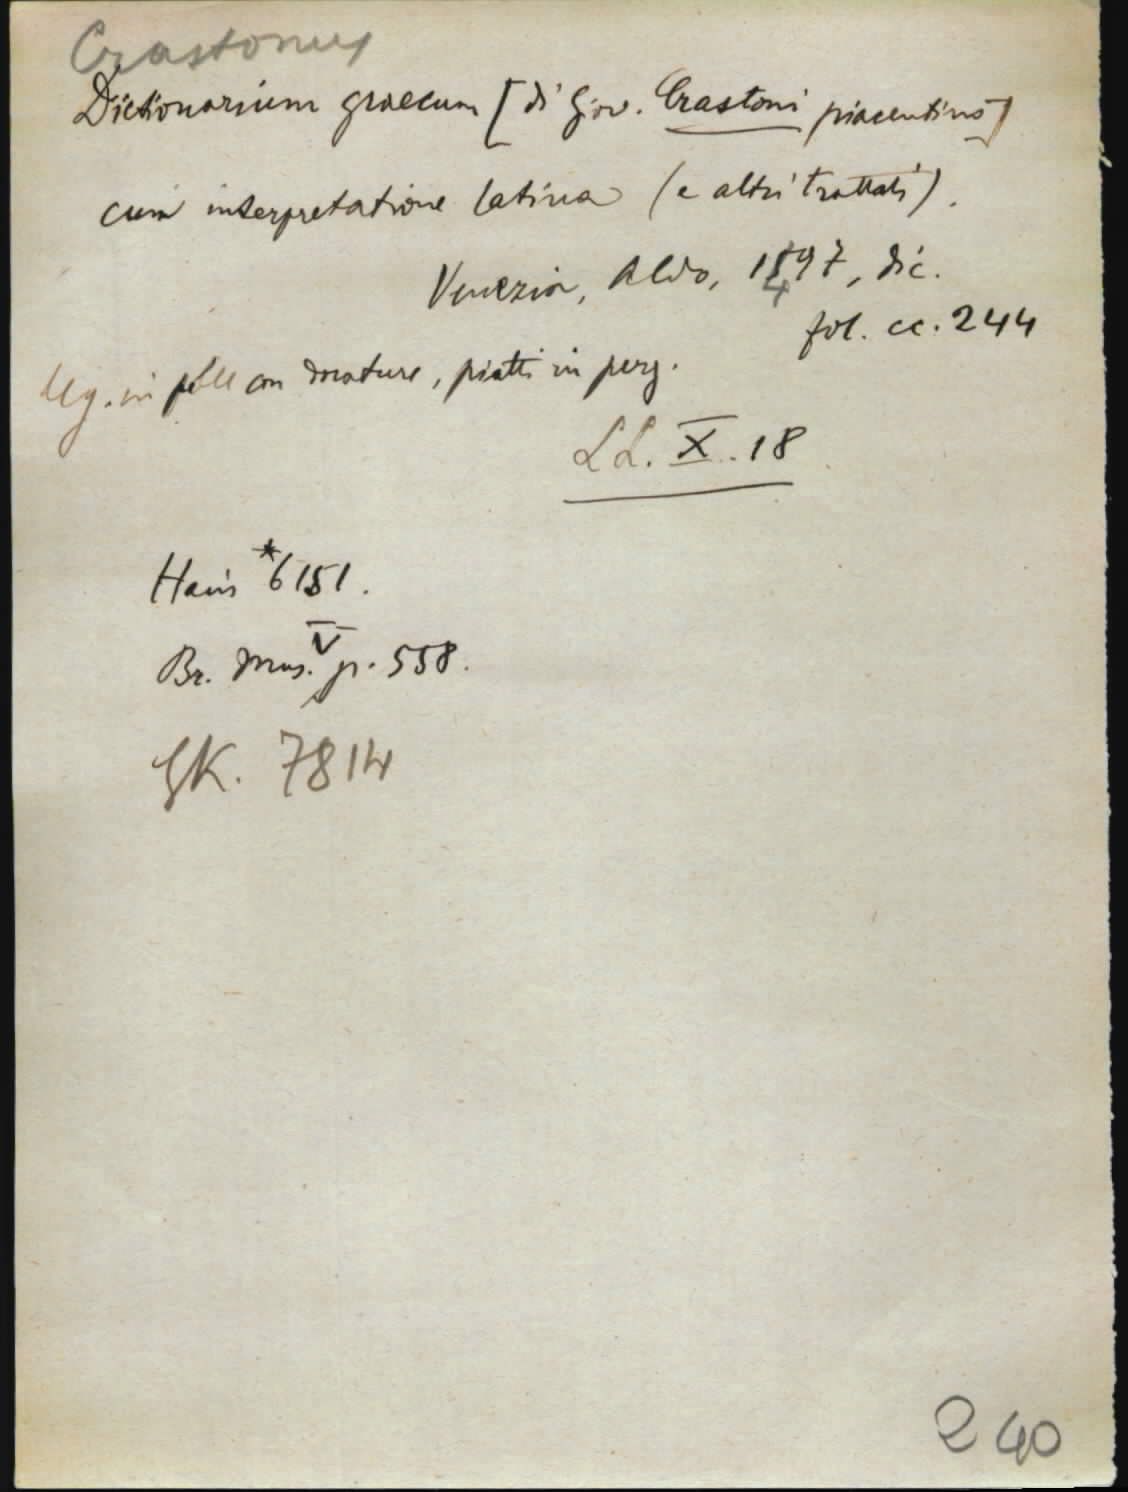 Crastonus
Dictionarium graecum [di Giov. Crastoni piacentino]
cum interpretatione latina (e altri trattati).
Venezia, Aldo, 1497, dic.
fol. cc. 244
leg. in pelle con dorature, piatti in perg.
LL. X. 18
Hain *6151.
Br. Mus. V p. 558.
GK. 7814
240